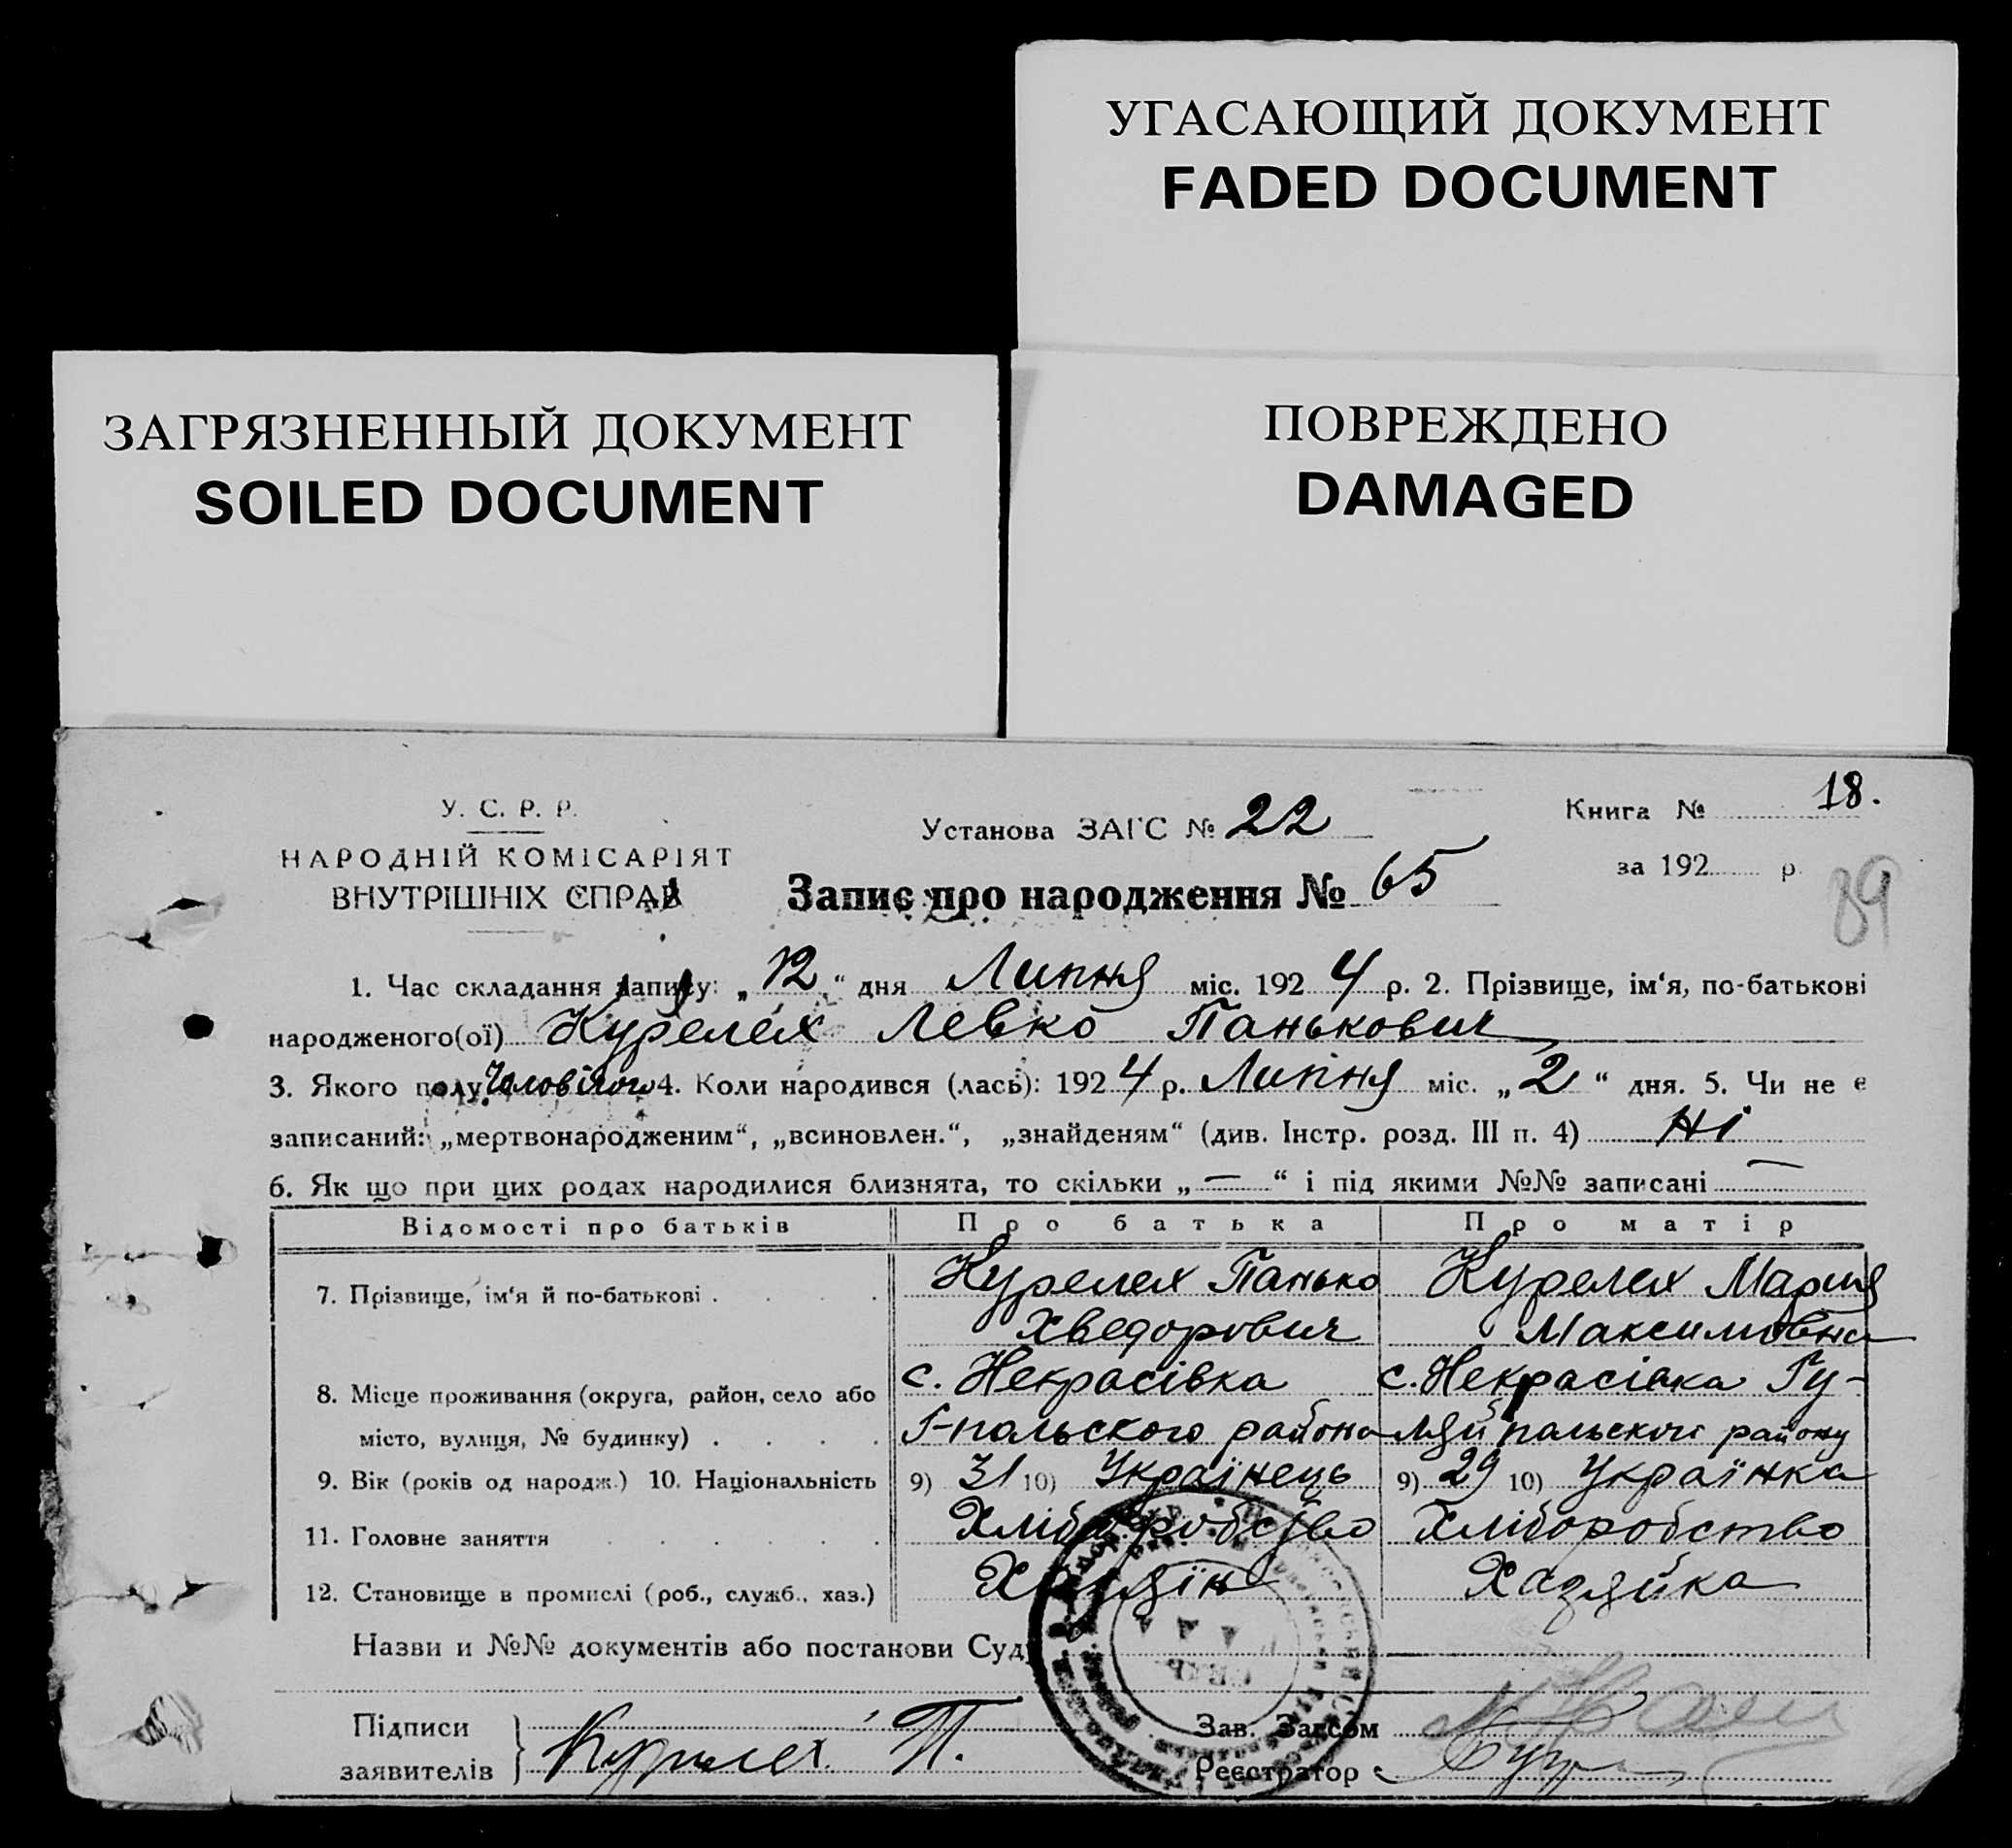 УГАСАЮЩИЙ ДОКУМЕНТ
FADED DOCUMENT
ЗАГРЯЗНЕННЫЙ ДОКУМЕНТ
SOILED DOCUMENT
ПОВРЕЖДЕНО
DAMAGED
У. С. Р. Р.
НАРОДНІЙ КОМІСАРІЯТ
ВНУТРІШНІХ СПРАВ
Установа ЗАГС № 22
Книга № 18.
за 192 р.
Запис про народження № 65
89
1. Час складання запису: „12“ дня Липня міс. 1924 р. 2. Прізвище, ім‘я, по-батькові
народженого(ої) Курелех Левко Панькович
3. Якого полу Чоловічого 4. Коли народився (лась): 1924 р. Липня міс. „2“ дня. 5. Чи не є
записаний: „мертвонародженим“, „всиновлен.“, „знайденям“ (див. Інстр. розд. III п. 4) Ні
6. Як що при цих родах народилися близнята, то скільки „—“ і під якими №№ записані —
Відомості про батьків Про батька Про матір
7. Прізвище, ім‘я й по-батькові . . . . Курелех Панько Курелех Мария
Хведорович Максимовна
8. Місце проживання (округа, район, село або с. Некрасівка с. Некрасівка Гу-
місто, вулиця, № будинку) . . . . Г-польского района ляйпольского району
9. Вік (років од народж.) 10. Національність 9) 31 10) Українець 9) 29 10) Українка
11. Головне заняття . . . . . . Хліборобство Хліборобство
12. Становище в промислі (роб., служб., хаз.) Хазяїн Хазяйка
Назви и №№ документів або постанови Суду
Підписи
заявителів } Курилех П.
Зав. Загсом
Реєстратор